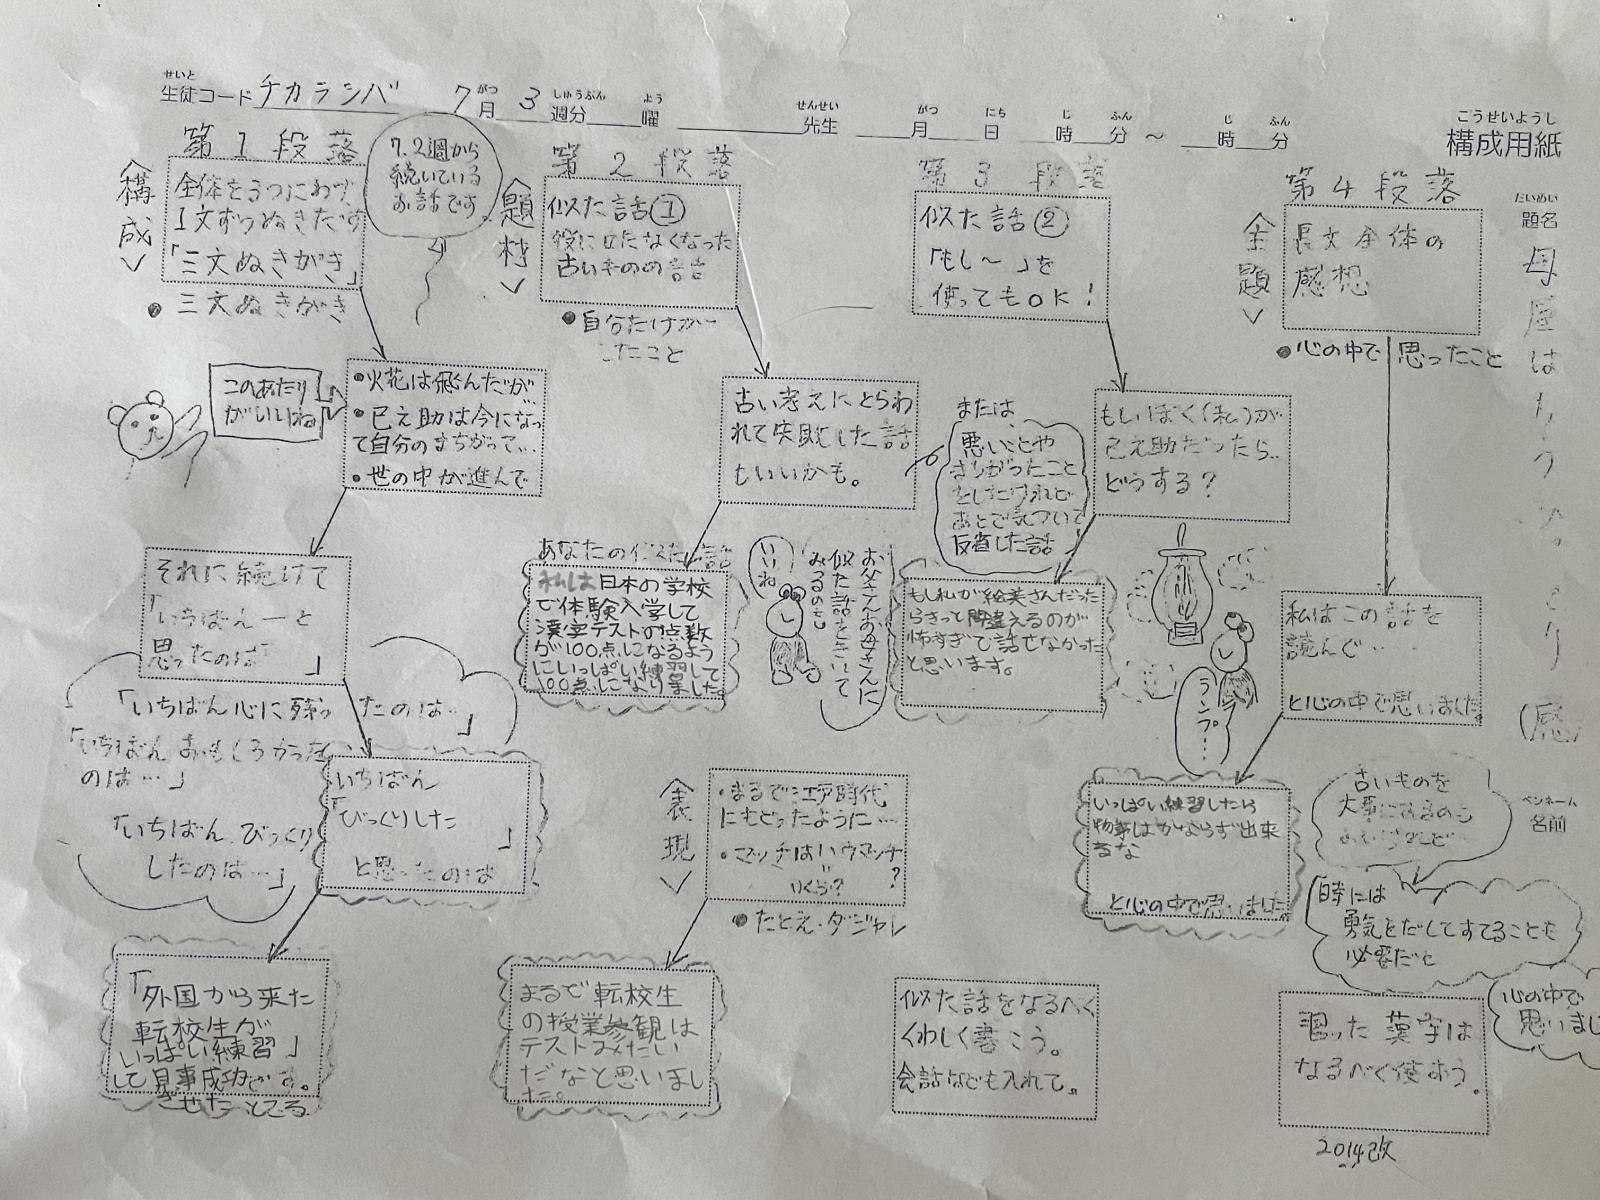 せいと
生徒コード チカラシバ 7月 3週分 曜 先生 月 日 時 分 ～ 時 分
がつ しゅうぶん よう せんせい がつ にち じ ふん じ ふん
こうせいようし
構成用紙
だいめい
題名
母屋は
ペンネーム
名前
第1段落
構成
全体を3つにわけ
1文ずつぬきだす
「三文ぬきがき」
●三文ぬきがき
7.2週から
続いている
お話です
このあたり
がいいね
●火花は飛んだが
●巳之助は今になっ
て自分のまちがって…
●世の中が進んで
それに続けて
「いちばん―と
思ったのは 」
「いちばん心に残ったのは…」
「いちばんおもしろかった
のは…」
「いちばんびっくり
したのは…」
いちばん
「びっくりした 」
と思ったのは
「外国から来た
転校生が
いっぱい練習」
して見事成功です。
させたところ
第2段落
題材
似た話①
役に立たなくなった
古いものの話
●自分だけが
したこと
古い考えにとらわ
れて失敗した話
もいいかも。
あなたの似た話
私は日本の学校
で体験入学して
漢字テストの点数
が100点になるよう
にいっぱい練習して
100点になりました。
いいね
お父さんお母さんに
似た話をきいて
みるのも
表現
・まるで江戸時代
にもどったように…
・マッチはハウマッチ?
いくら?
●たとえ・ダジャレ
まるで転校生
の授業参観は
テストみたい
だなと思いまし
た。
第3段落
似た話②
「もし～」を
使ってもOK!
または、
悪いことや
まちがったこと
をしたけれど
あとで気づいて
反省した話
もしぼく(私)が
巳之助だったら
どうする?
もし私が絵美さんだった
らきっと間違えるのが
怖すぎて話せなかった
と思います。
ランプ…
似た話をなるべく
くわしく書こう。
会話なども入れて。
第4段落
主題
長文全体の
感想
●心の中で思ったこと
私はこの話を
読んで…
と心の中で思いました。
いっぱい練習したら
物事はかならず出来
るな
と心の中で思いました。
古いものを
大事にするのも
「時には
勇気をだしてすてることも
必要だと
心の中で
習った漢字は
なるべく使おう。
2014改